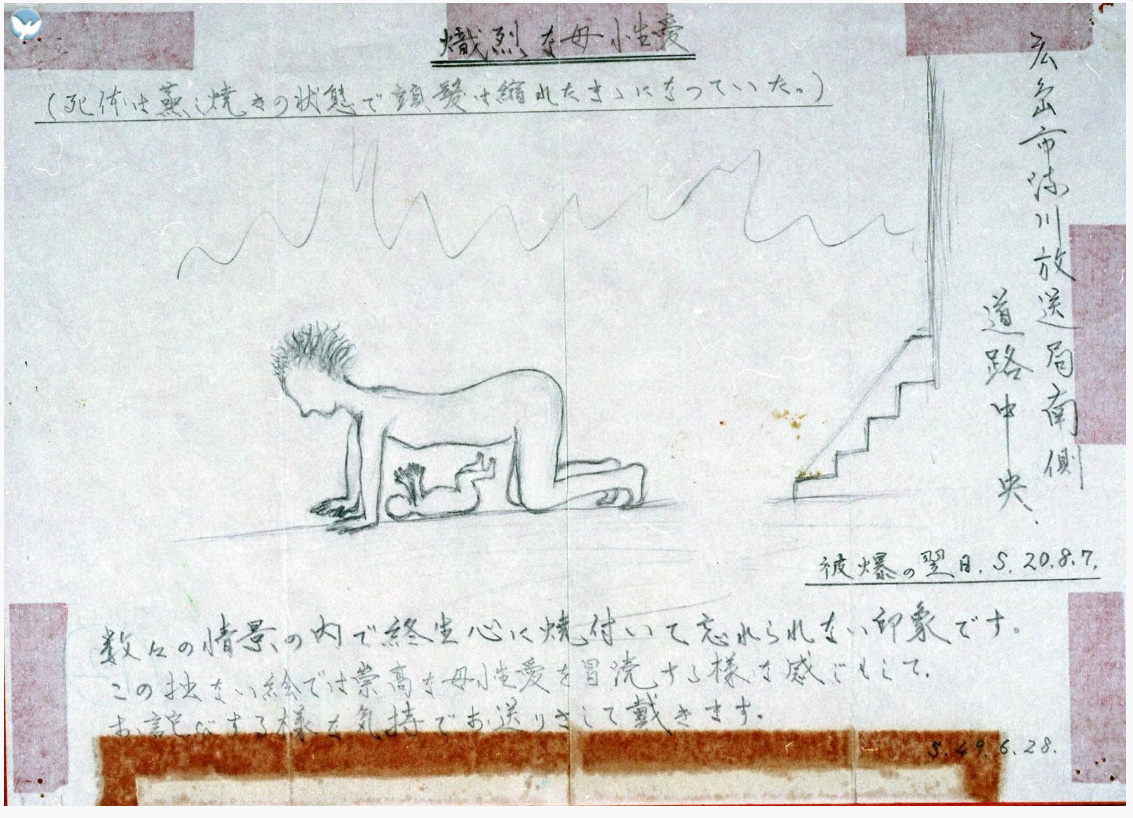 熾烈な母性愛
(死体は蒸し焼きの状態で頭髪は縮れたまゝになっていた。)
広島市流川放送局南側
道路中央.
被爆の翌日. S. 20.8.7.
数々の情景の内で終生心に焼付いて忘れられない印象です。
この拙ない絵では崇高な母性愛を冒涜する様な感じもして、
お詫びする様な気持でお送りさして戴きます。
S. 49.6.28.